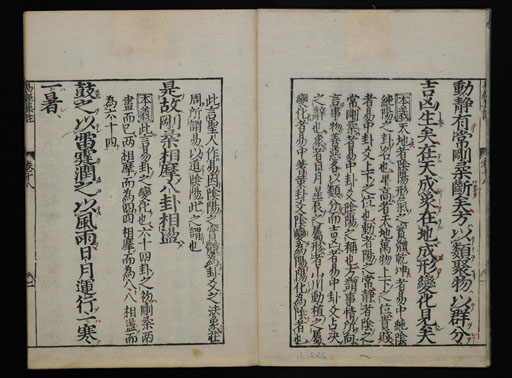 動静有常剛柔斷矣方以類聚物以群分
吉凶生矣在天成象在地成形變化見矣
本義天地者陰陽形氣之實體乾坤者易中純陰
純陽之卦名也卑高者天地萬物上下之位貴賤
者易中卦爻上下之位也動者陽之常靜者陰之
常剛柔者易中卦爻陰陽之稱也方謂事情所向
言事物善惡各以類分而吉凶者易中卦爻占决
之辭也象者日月星辰之屬形者山川動植之屬
變化者易中蓍策卦爻陰變爲陽陽化爲陰者也
此言聖人作易因陰陽之實體爲卦爻之法象莊
周所謂易以道陰陽此之謂也
是故剛柔相摩八卦相盪
本義此言易卦之變化也六十四卦之初剛柔兩
畫而已兩相摩而為四四相摩而為八八相盪而
為六十四
鼓之以雷霆潤之以風雨日月運行一寒
一暑